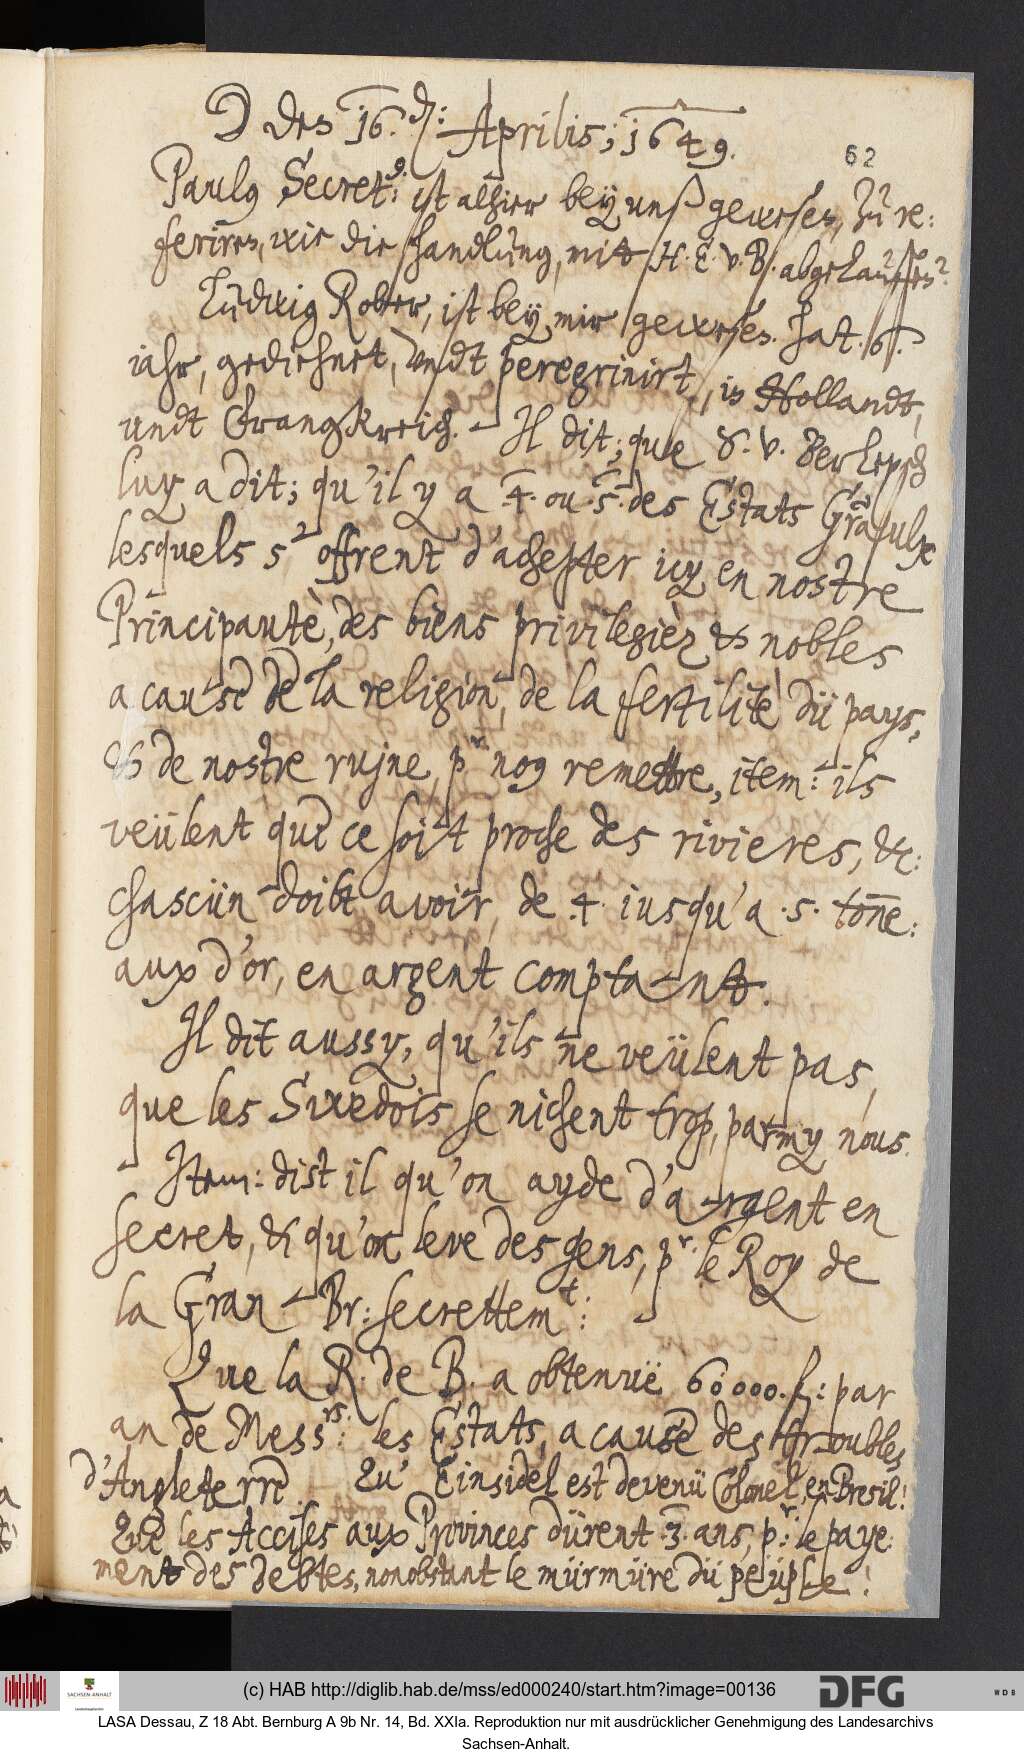 ☽ des 16. d: Aprilis; 1649.
62
Paulus Secret: ist alhier bey unß gewesen, zu re:
feriren, wie die handlung, mitt H. E. v. B. abgelauffen?
Ludwig Rober, ist bey mir gewesen. hat .6.
jahr, gediehnet, undt peregrinirt, in Hollandt,
undt Frangkreich. Il dit; que d. v. Berlepsch
luy a dit; qu'il y a .4. ou .5. des Estats
lesquels s' offrent d'achepter icy en nostre
Principautè, des biens privilegièz & nobles
a cause de la religion, de la fertilitè dü pays,
& de nostre rujne, pr nous remettre, item: ils
veülent que ce soit proche des rivieres, &c:
chascün doibt avoir, de .4. iusqu'a .5. tonne:
aux d'or, en argent comptant.
Il dit aussy, qu'ils ne veülent pas,
que les Swedois se nichent trop, parmy nous.
Item: dist il qu'on ayde d'argent en
secret, & qu'on leve des gens, pr. le Roy de
la Gran Br: secrettemt:
Que la R. de B. a obtenuë 60000. f: par
an de Messrs: les Estats, a cause des troubles
d'Angleterre. Qu' Einsidel est devenü Colonel, en Bresil!
Que les Accises aux Provinces dürent .3. ans, pr: le paye:
ment des debtes, nonobstant le mürmüre dü peüple!
(c) HAB http://diglib.hab.de/mss/ed000240/start.htm?image=00136
SACHSEN-ANHALT
DFG
WDB
LASA Dessau, Z 18 Abt. Bernburg A 9b Nr. 14, Bd. XXIa. Reproduktion nur mit ausdrücklicher Genehmigung des Landesarchivs
Sachsen-Anhalt.